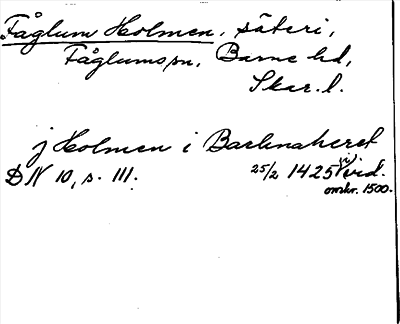 Fåglum Holmen, säteri,
Fåglums sn, Barne hd,
Skar. l.
j Holmen i Barknaheret
DN 10, s. 111. 25/2 1425 vid.
omkr. 1500.